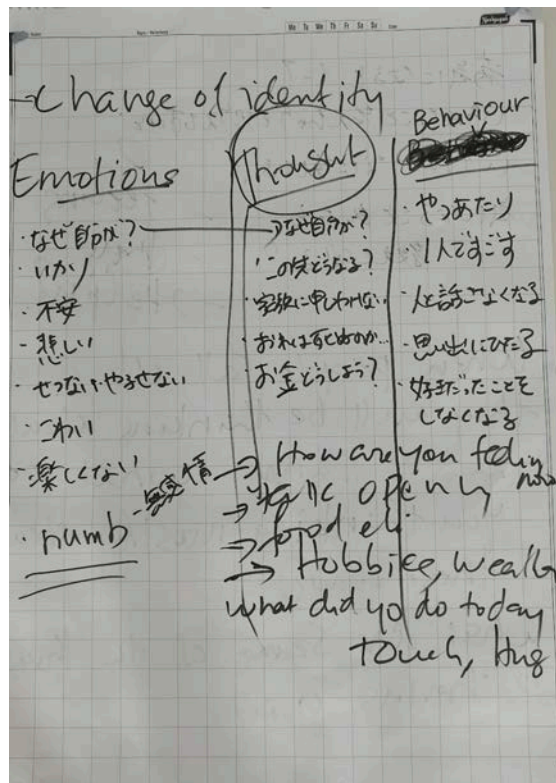 Mo Tu We Th Fr Sa Su
→Change of identity
Emotions
・なぜ自分が?
・いかり
・不安
・悲しい
・せつない・やるせない
・こわい
・楽しくない
・無感情
・numb
Thought
→なぜ自分が?
・この先どうなる?
・家族に申しわけない
・おれは死ぬのか…
・お金どうしよう?
Behaviour
・やつあたり
・1人ですごす
・人と話さなくなる
・思い出にひたる
・好きだったことを
しなくなる
→ How are you feeling now
→ talk openly
→ food
→ Hobbies,
what did yo do today
touch, Hug